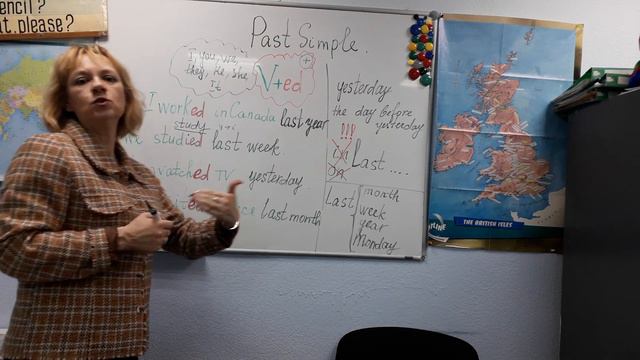 encil?
t.please?
Past Simple.
I, you, we,
they, He, She
It
V+ed
+
I worked in Canada last year
study
studied last week
watched TV yesterday
last month
yesterday
the day before
yesterday
!!!
in
on
Last ....
Last
month
week
year
Monday
THE BRITISH ISLES